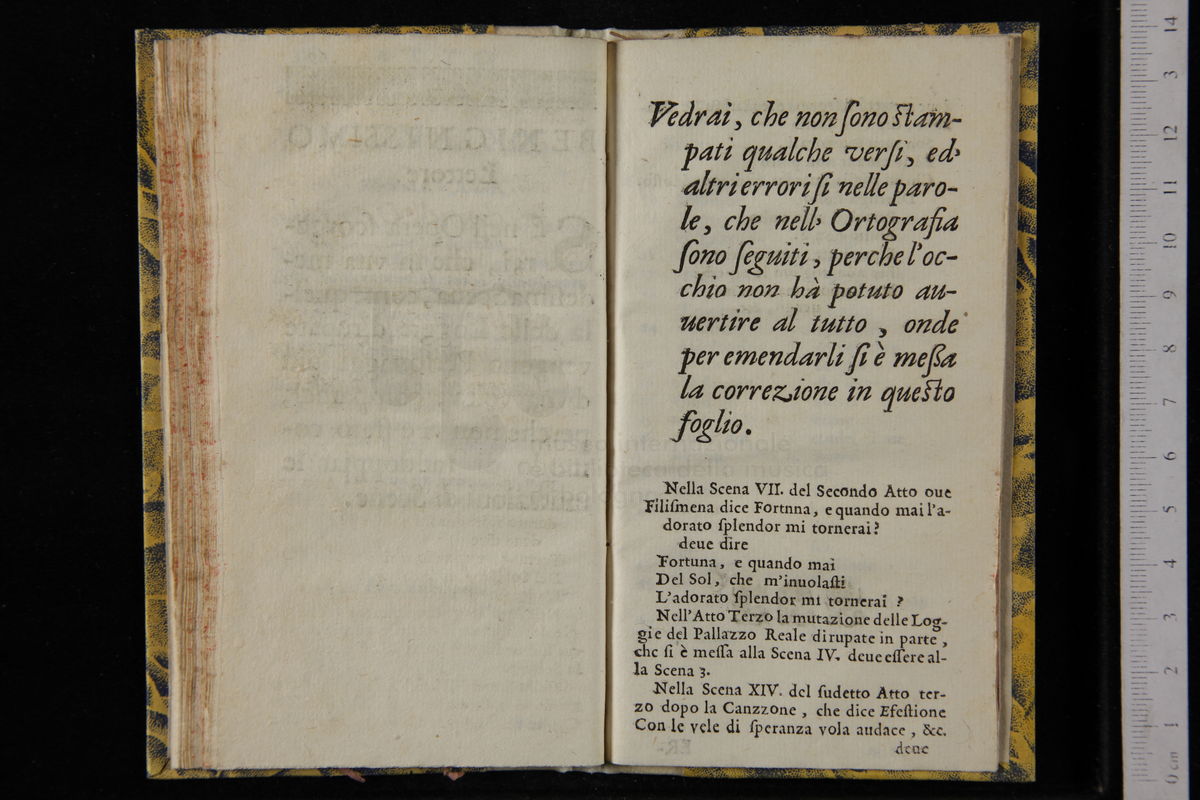 Vedrai, che non ſono ſtam-
pati qualche verſi, ed
altri errori ſi nelle paro-
le, che nell' Ortografia
ſono ſeguiti, perche l'oc-
chio non hà potuto au-
uertire al tutto , onde
per emendarli ſi è meſſa
la correzione in queſto
foglio.
Nella Scena VII. del Secondo Atto oue
Filiſmena dice Fortnna, e quando mai l'a-
dorato ſplendor mi tornerai?
deue dire
Fortuna, e quando mai
Del Sol, che m'inuolaſti
L'adorato ſplendor mi tornerai ?
Nell'Atto Terzo la mutazione delle Log-
gie del Pallazzo Reale dirupate in parte ,
che ſi è meſſa alla Scena IV. deue eſſere al-
la Scena 3.
Nella Scena XIV. del ſudetto Atto ter-
zo dopo la Canzzone , che dice Efeſtione
Con le vele di ſperanza vola audace , &c.
deue
museo internazionale
e biblioteca della musica
0 cm 1 2 3 4 5 6 7 8 9 10 11 12 3 14